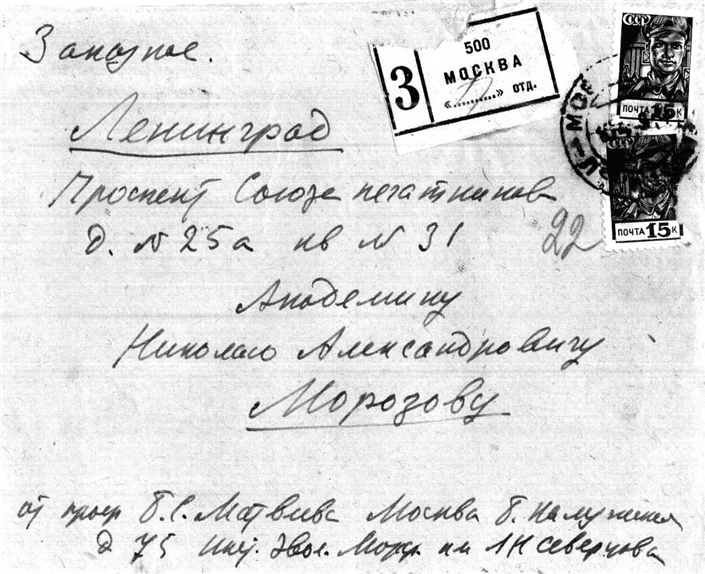 Заказное.
3
500
МОСКВА
«..........» отд.
СССР
ПОЧТА 15 К
ПОЧТА 15 К
Ленинград
Проспект Союза печатников
д. N 25а кв N 31
22
Академику
Николаю Александровичу
Морозову
от проф Б.С. Матвеева Москва Б. Калужская
д 75 Инст. Эвол. Морф. им АН Северцова